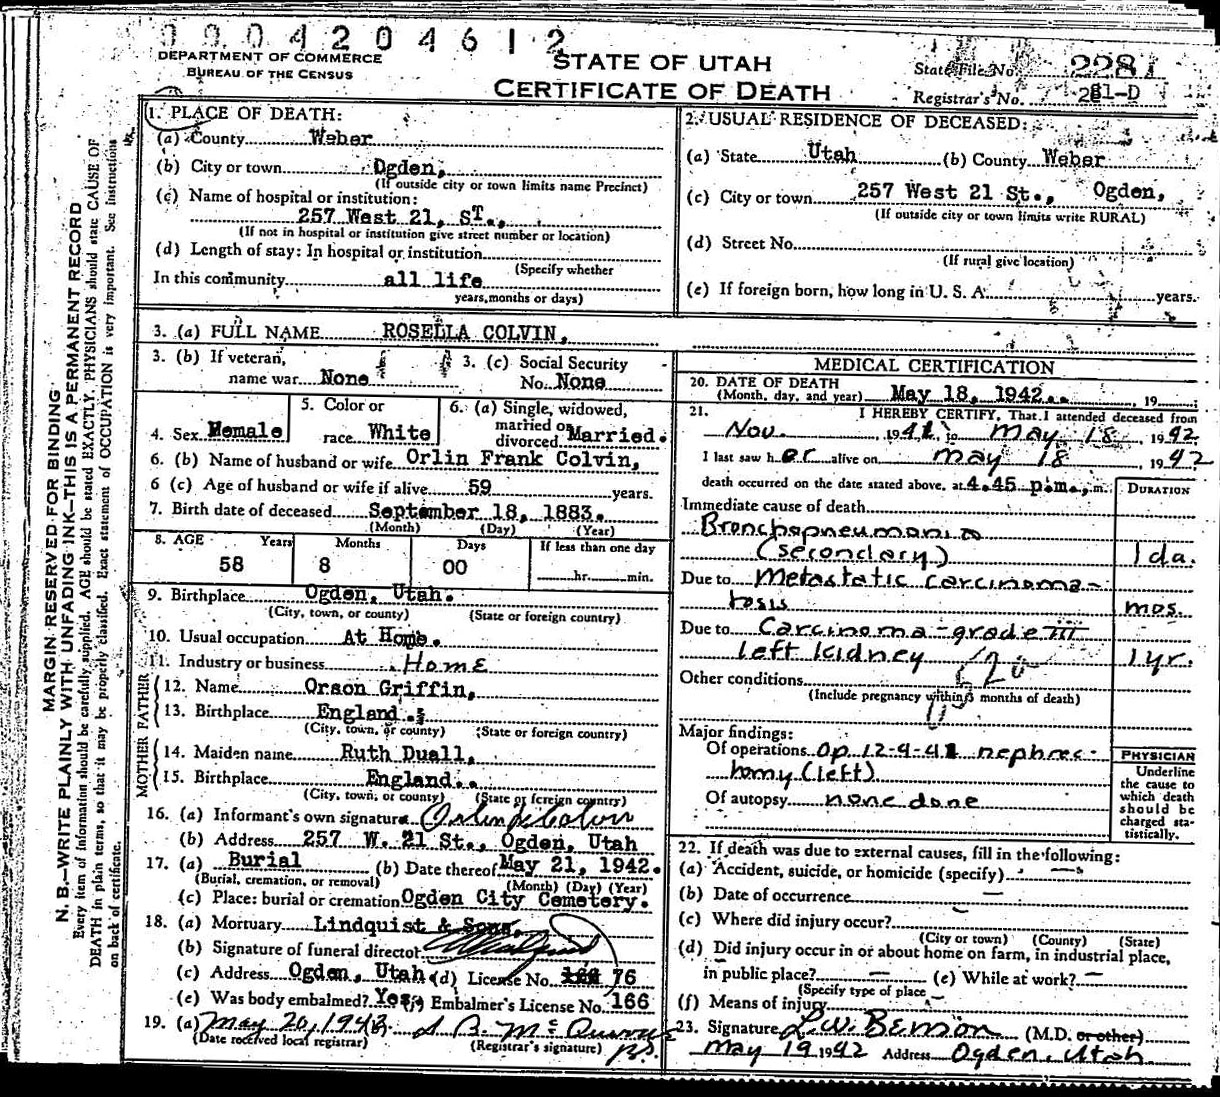 0904204612
DEPARTMENT OF COMMERCE
BUREAU OF THE CENSUS
STATE OF UTAH
CERTIFICATE OF DEATH
State File No. 228
Registrar's No. 281-D
MARGIN RESERVED FOR BINDING
N. B.—WRITE PLAINLY WITH UNFADING INK—THIS IS A PERMANENT RECORD
Every item of information should be carefully supplied. AGE should be stated EXACTLY. PHYSICIANS should state CAUSE OF
DEATH in plain terms, so that it may be properly classified. Exact statement of OCCUPATION is very important. See instructions
on back of certificate.
1. PLACE OF DEATH:
(a) County Weber
(b) City or town Ogden,
(If outside city or town limits name Precinct)
(c) Name of hospital or institution:
257 West 21, ST.,
(If not in hospital or institution give street number or location)
(d) Length of stay: In hospital or institution
(Specify whether
In this community all life
years, months or days)
2. USUAL RESIDENCE OF DECEASED:
(a) State Utah (b) County Weber
(c) City or town 257 West 21 St., Ogden,
(If outside city or town limits write RURAL)
(d) Street No.
(If rural give location)
(e) If foreign born, how long in U. S. A. years.
3. (a) FULL NAME ROSELLA COLVIN,
3. (b) If veteran,
name war None
3. (c) Social Security
No. None
4. Sex Female
5. Color or
race White
6. (a) Single, widowed,
married or
divorced Married.
6. (b) Name of husband or wife Orlin Frank Colvin,
6 (c) Age of husband or wife if alive 59 years.
7. Birth date of deceased September 18, 1883.
(Month) (Day) (Year)
8. AGE Years Months Days If less than one day
58 8 00 hr. min.
9. Birthplace Ogden, Utah.
(City, town, or county) (State or foreign country)
10. Usual occupation At Home.
11. Industry or business Home
FATHER
12. Name Orson Griffin,
13. Birthplace England.
(City, town, or county) (State or foreign country)
MOTHER
14. Maiden name Ruth Duall,
15. Birthplace England..
(City, town, or county) (State or foreign country)
16. (a) Informant's own signature Orlin F Colvin
(b) Address 257 W. 21 St., Ogden, Utah
17. (a) Burial (b) Date thereof May 21, 1942.
(Burial, cremation, or removal) (Month) (Day) (Year)
(c) Place: burial or cremation Ogden City Cemetery.
18. (a) Mortuary Lindquist & Sons.
(b) Signature of funeral director
(c) Address Ogden, Utah (d) License No. 76
(e) Was body embalmed? Yes, (f) Embalmer's License No. 166
19. (a) May 20, 1942
(Date received local registrar) (Registrar's signature)
MEDICAL CERTIFICATION
20. DATE OF DEATH
(Month, day, and year) May 18, 1942. , 19
21. I HEREBY CERTIFY, That I attended deceased from
Nov. 1941 to May 18 1942.
I last saw her alive on May 18, 1942
death occurred on the date stated above, at 4.45 p.m., m.
DURATION
Immediate cause of death
Bronchopneumonia
(secondary) 1 da.
Due to Metastatic carcinoma-
tosis mos.
Due to Carcinoma-grade III
left kidney 1 yr.
Other conditions
(Include pregnancy within 3 months of death)
Major findings:
Of operations Op. 12-4-41 nephrec-
tomy (left)
Of autopsy none done
PHYSICIAN
Underline
the cause to
which death
should be
charged sta-
tistically.
22. If death was due to external causes, fill in the following:
(a) Accident, suicide, or homicide (specify) —
(b) Date of occurrence —
(c) Where did injury occur?
(City or town) (County) (State)
(d) Did injury occur in or about home on farm, in industrial place,
in public place? — (e) While at work? —
(Specify type of place
(f) Means of injury
23. Signature L.W. Benson (M.D. or other)
May 19 1942 Address Ogden, Utah